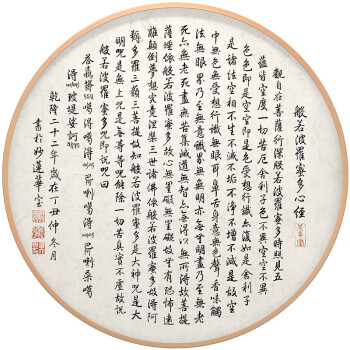 般若波羅蜜多心經
觀自在菩薩行深般若波羅蜜多時照見五
蘊皆空度一切苦厄舍利子色不異空空不異
色色即是空空即是色受想行識亦復如是舍利子
是諸法空相不生不滅不垢不淨不增不減是故空
中無色無受想行識無眼耳鼻舌身意無色聲香味觸
法無眼界乃至無意識界無無明亦無無明盡乃至無老
死亦無老死盡無苦集滅道無智亦無得以無所得故菩提
薩埵依般若波羅蜜多故心無罣礙無罣礙故無有恐怖遠
離顛倒夢想究竟涅槃三世諸佛依般若波羅蜜多故得阿
耨多羅三藐三菩提故知般若波羅蜜多是大神咒是大
明咒是無上咒是無等等咒能除一切苦真實不虛故說
般若波羅蜜多咒即說咒曰
噶得噶得 喇噶得 喇桑噶
得 娑訶
乾隆二十二年歲在丁丑仲冬月
書於妙蓮華室